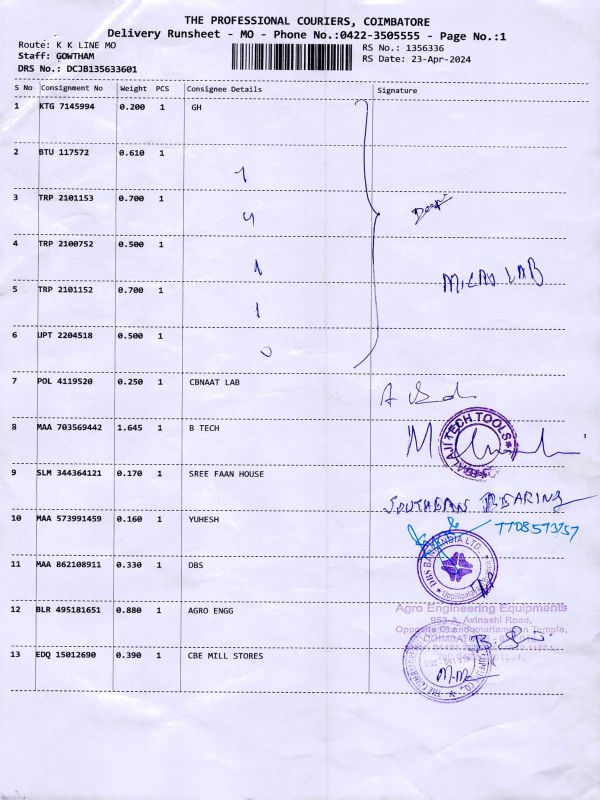 THE PROFESSIONAL COURIERS, COIMBATORE
Delivery Runsheet - MO - Phone No.:0422-3505555 - Page No.:1
Route: K K LINE MO
RS No.: 1356336
Staff: GOWTHAM
RS Date: 23-Apr-2024
DRS No.: DCJB135633601
S No Consignment No Weight PCS Consignee Details Signature
1 KTG 7145994 0.200 1 GH
2 BTU 117572 0.610 1
3 TRP 2101153 0.700 1
4 TRP 2100752 0.500 1
MICRO LAB
5 TRP 2101152 0.700 1
6 UPT 2204518 0.500 1
7 POL 4119520 0.250 1 CBNAAT LAB
8 MAA 703569442 1.645 1 B TECH
BALAJI TECH TOOLS
9 SLM 344364121 0.170 1 SREE FAAN HOUSE
SOUTHERN BEARING
10 MAA 573991459 0.160 1 YUHESH
DBS BANK INDIA LTD.
11 MAA 862108911 0.330 1 DBS
12 BLR 495181651 0.880 1 AGRO ENGG
Agro Engineering Equipments
953-A, Avinashi Road,
Temple,
13 EDQ 15012690 0.390 1 CBE MILL STORES